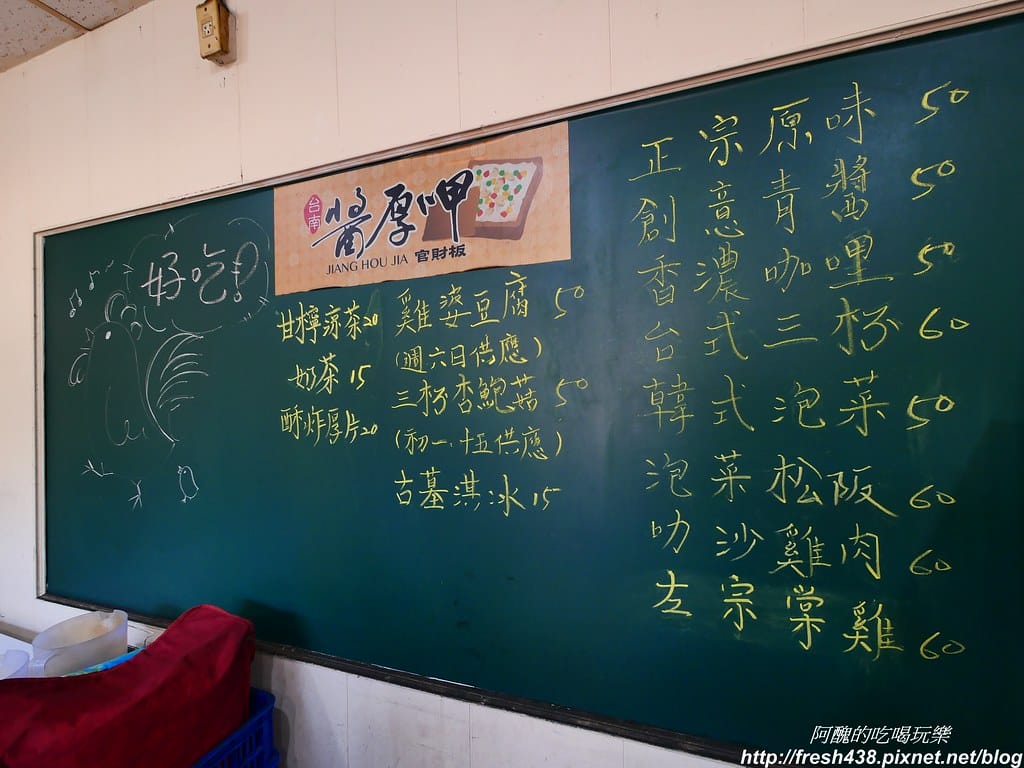 好吃!?
台南
醬厚呷
JIANG HOU JIA 官財板
甘檸涼茶20
奶茶 15
酥炸厚片20
雞婆豆腐 50
(週六日供應)
三杯杏鮑菇 50
(初一、十五供應)
古墓淇冰 15
正宗原味 50
創意青醬 50
香濃咖哩 50
台式三杯 60
韓式泡菜 50
泡菜松阪 60
叻沙雞肉 60
左宗棠雞 60
阿醜的吃喝玩樂
http://fresh438.pixnet.net/blog